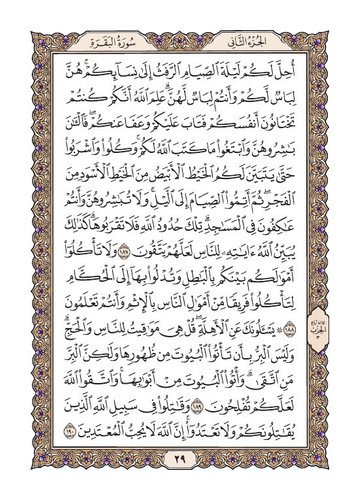 الجزء الثاني
سورة البقرة
أُحِلَّ لَكُمْ لَيْلَةَ ٱلصِّيَامِ ٱلرَّفَثُ إِلَىٰ نِسَآئِكُمْ ۚ هُنَّ
لِبَاسٌ لَّكُمْ وَأَنتُمْ لِبَاسٌ لَّهُنَّ ۗ عَلِمَ ٱللَّهُ أَنَّكُمْ كُنتُمْ
تَخْتَانُونَ أَنفُسَكُمْ فَتَابَ عَلَيْكُمْ وَعَفَا عَنكُمْ ۖ فَٱلْـَٰٔنَ
بَـٰشِرُوهُنَّ وَٱبْتَغُوا۟ مَا كَتَبَ ٱللَّهُ لَكُمْ ۚ وَكُلُوا۟ وَٱشْرَبُوا۟
حَتَّىٰ يَتَبَيَّنَ لَكُمُ ٱلْخَيْطُ ٱلْأَبْيَضُ مِنَ ٱلْخَيْطِ ٱلْأَسْوَدِ مِنَ
ٱلْفَجْرِ ۖ ثُمَّ أَتِمُّوا۟ ٱلصِّيَامَ إِلَى ٱلَّيْلِ ۚ وَلَا تُبَـٰشِرُوهُنَّ وَأَنتُمْ
عَـٰكِفُونَ فِى ٱلْمَسَـٰجِدِ ۗ تِلْكَ حُدُودُ ٱللَّهِ فَلَا تَقْرَبُوهَا ۗ كَذَٰلِكَ
يُبَيِّنُ ٱللَّهُ ءَايَـٰتِهِۦ لِلنَّاسِ لَعَلَّهُمْ يَتَّقُونَ ١٨٧ وَلَا تَأْكُلُوٓا۟
أَمْوَٰلَكُم بَيْنَكُم بِٱلْبَـٰطِلِ وَتُدْلُوا۟ بِهَآ إِلَى ٱلْحُكَّامِ
لِتَأْكُلُوا۟ فَرِيقًا مِّنْ أَمْوَٰلِ ٱلنَّاسِ بِٱلْإِثْمِ وَأَنتُمْ تَعْلَمُونَ
١٨٨ ۞ يَسْـَٔلُونَكَ عَنِ ٱلْأَهِلَّةِ ۖ قُلْ هِىَ مَوَٰقِيتُ لِلنَّاسِ وَٱلْحَجِّ ۗ
وَلَيْسَ ٱلْبِرُّ بِأَن تَأْتُوا۟ ٱلْبُيُوتَ مِن ظُهُورِهَا وَلَـٰكِنَّ ٱلْبِرَّ
مَنِ ٱتَّقَىٰ ۗ وَأْتُوا۟ ٱلْبُيُوتَ مِنْ أَبْوَٰبِهَا ۚ وَٱتَّقُوا۟ ٱللَّهَ
لَعَلَّكُمْ تُفْلِحُونَ ١٨٩ وَقَـٰتِلُوا۟ فِى سَبِيلِ ٱللَّهِ ٱلَّذِينَ
يُقَـٰتِلُونَكُمْ وَلَا تَعْتَدُوٓا۟ ۚ إِنَّ ٱللَّهَ لَا يُحِبُّ ٱلْمُعْتَدِينَ ١٩٠
الحزب
٣
٢٩